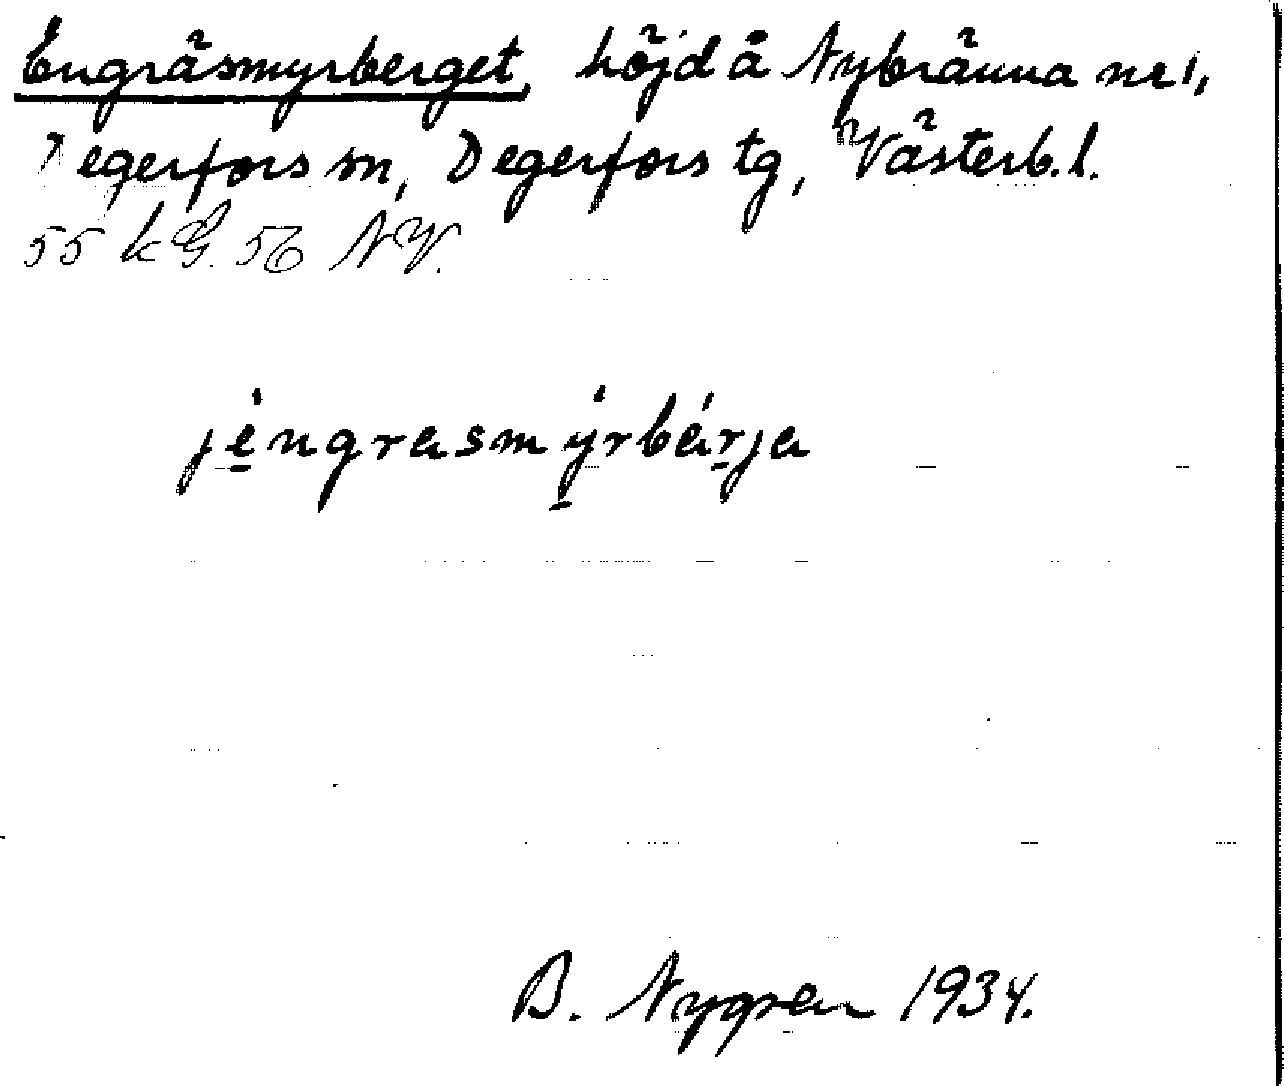 Engräsmyrberget, höjd å Nybränna nr 1,
Degerfors sn, Degerfors tg, Västerb. l.
55 k G. 56 NV.
jėngrasmẏrbárja
B. Nygren 1934.